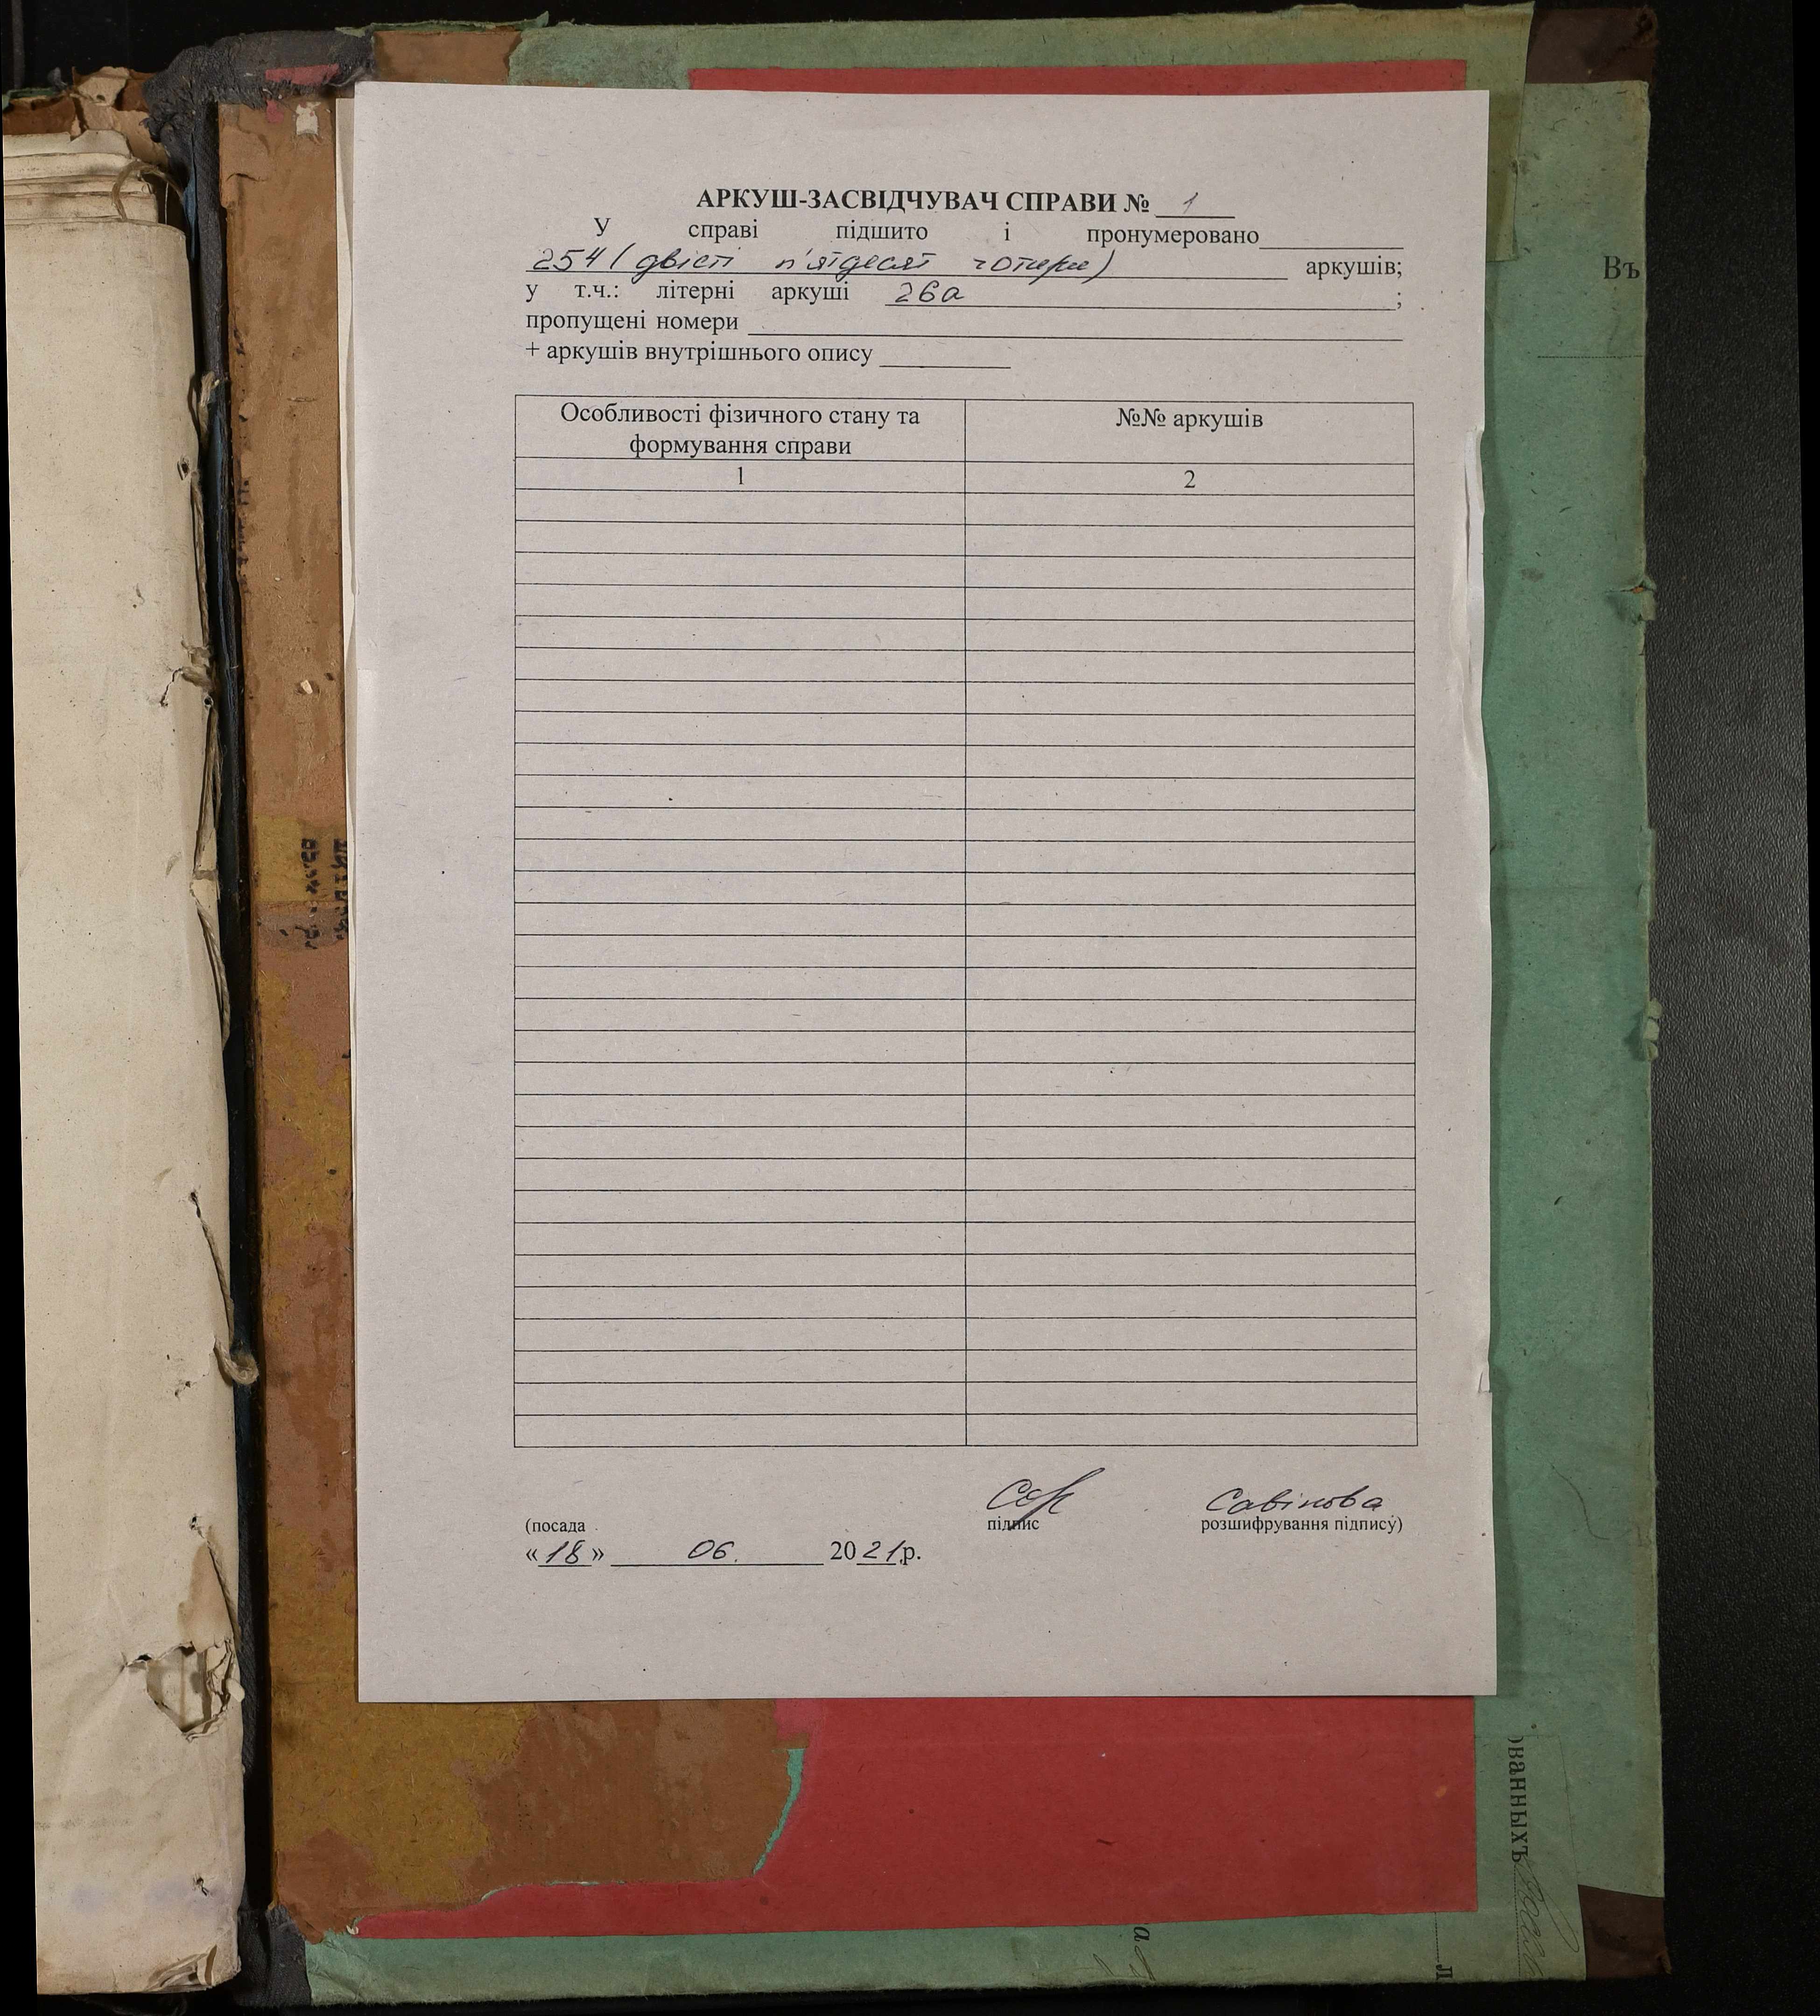 АРКУШ-ЗАСВІДЧУВАЧ СПРАВИ № 1
У справі підшито і пронумеровано
254 (двісті п'ятдесят чотири) аркушів;
у т.ч.: літерні аркуші 26а ;
пропущені номери
+ аркушів внутрішнього опису
Особливості фізичного стану та формування справи
№№ аркушів
1
2
Савінова
(посада
підпис
розшифрування підпису)
«18» 06. 2021р.
Въ
ованныхъ